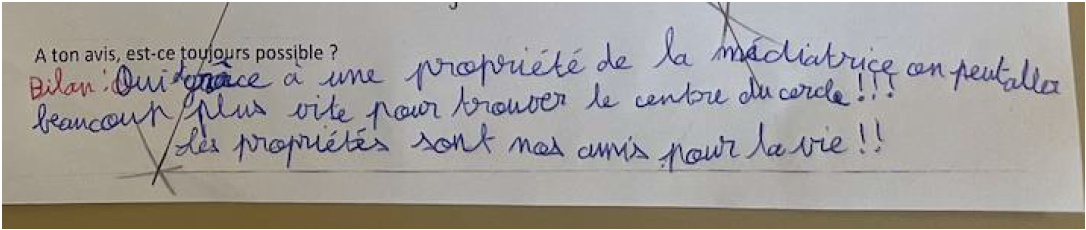 A ton avis, est-ce toujours possible ?
Bilan : Oui grâce à une propriété de la médiatrice on peut aller
beaucoup plus vite pour trouver le centre du cercle !!!
les propriétés sont nos amis pour la vie !!